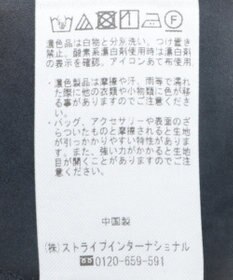 濃色品は白物と分別洗い。つけ置き
禁止、酸素系漂白剤使用時は漂白剤
の表示を確認。アイロンあて布使用
・濃色製品は摩擦や汗、雨等で濡れ
た際に他の衣類や小物類に色が移
る事がありますのでご注意下さい。
・バッグ、アクセサリーや表面のざ
らついたものと摩擦されると生地
が引っかかりやすい特性がありま
す。また、強い力がかかると生地
目が開くことがありますのでご注
意下さい。
中国製
(株)ストライプインターナショナル
0120-659-591